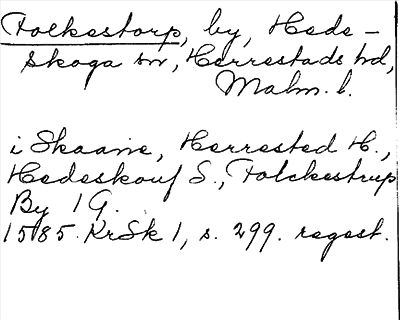 Folkestorp, by, Hede-
skoga sn, Herrestads hd,
Malm. l.
i Skaane, Herrested H.,
Hedeskouf S., Folckestrup
By 1 G.
1585 KrSk 1, s. 299. regest.